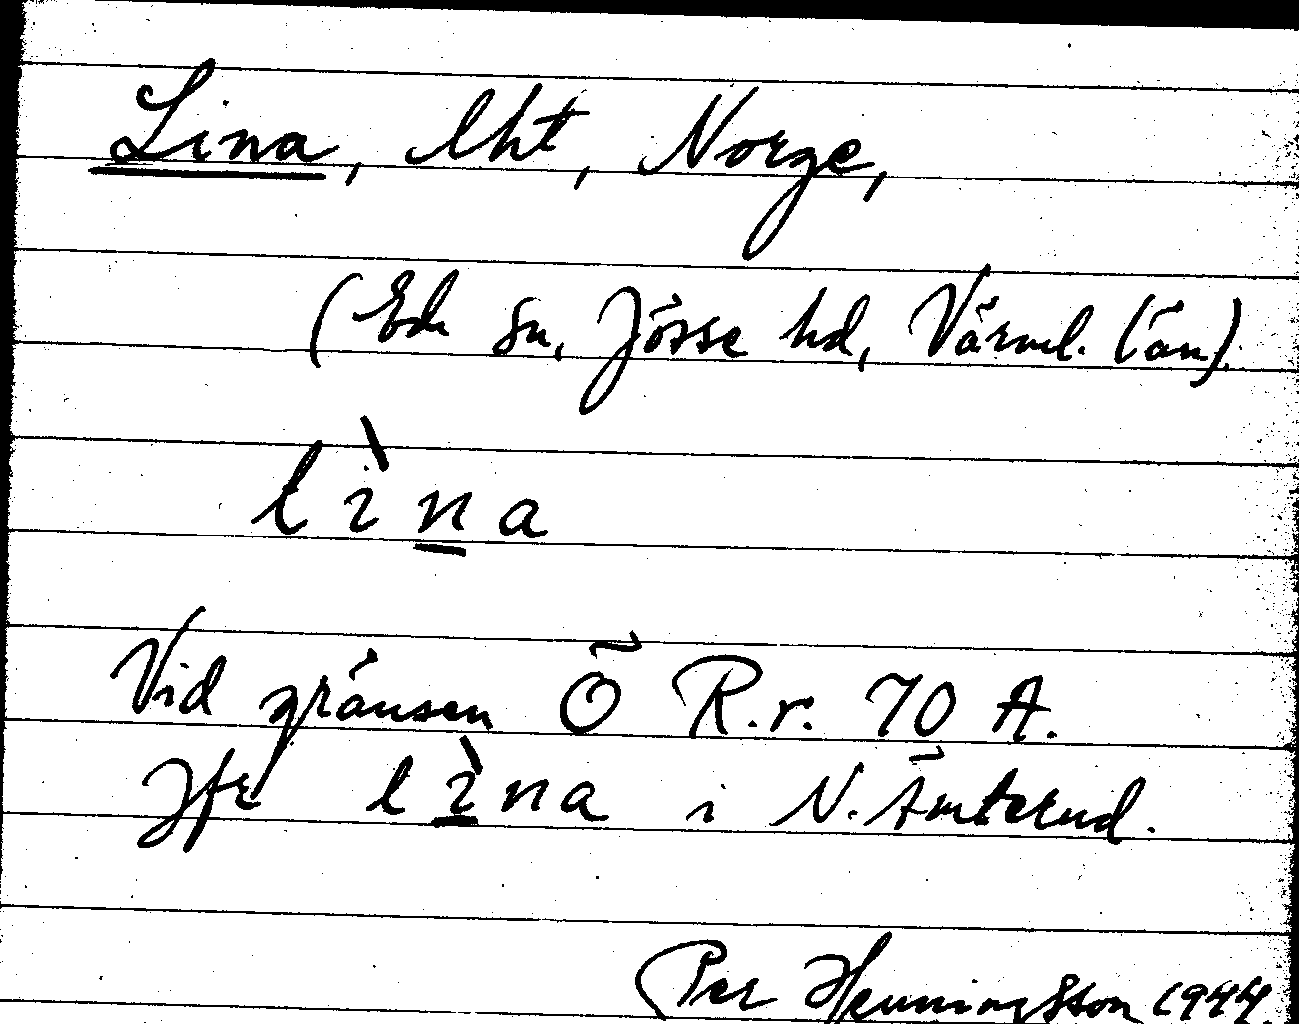 Lina, lht, Norge,
(Eda sn, Jösse hd, Värml. län).
lìna
Vid gränsen Ö R.r. 70 A.
Jfr lìna i N. Ämterud.
Per Henningsson 1944.